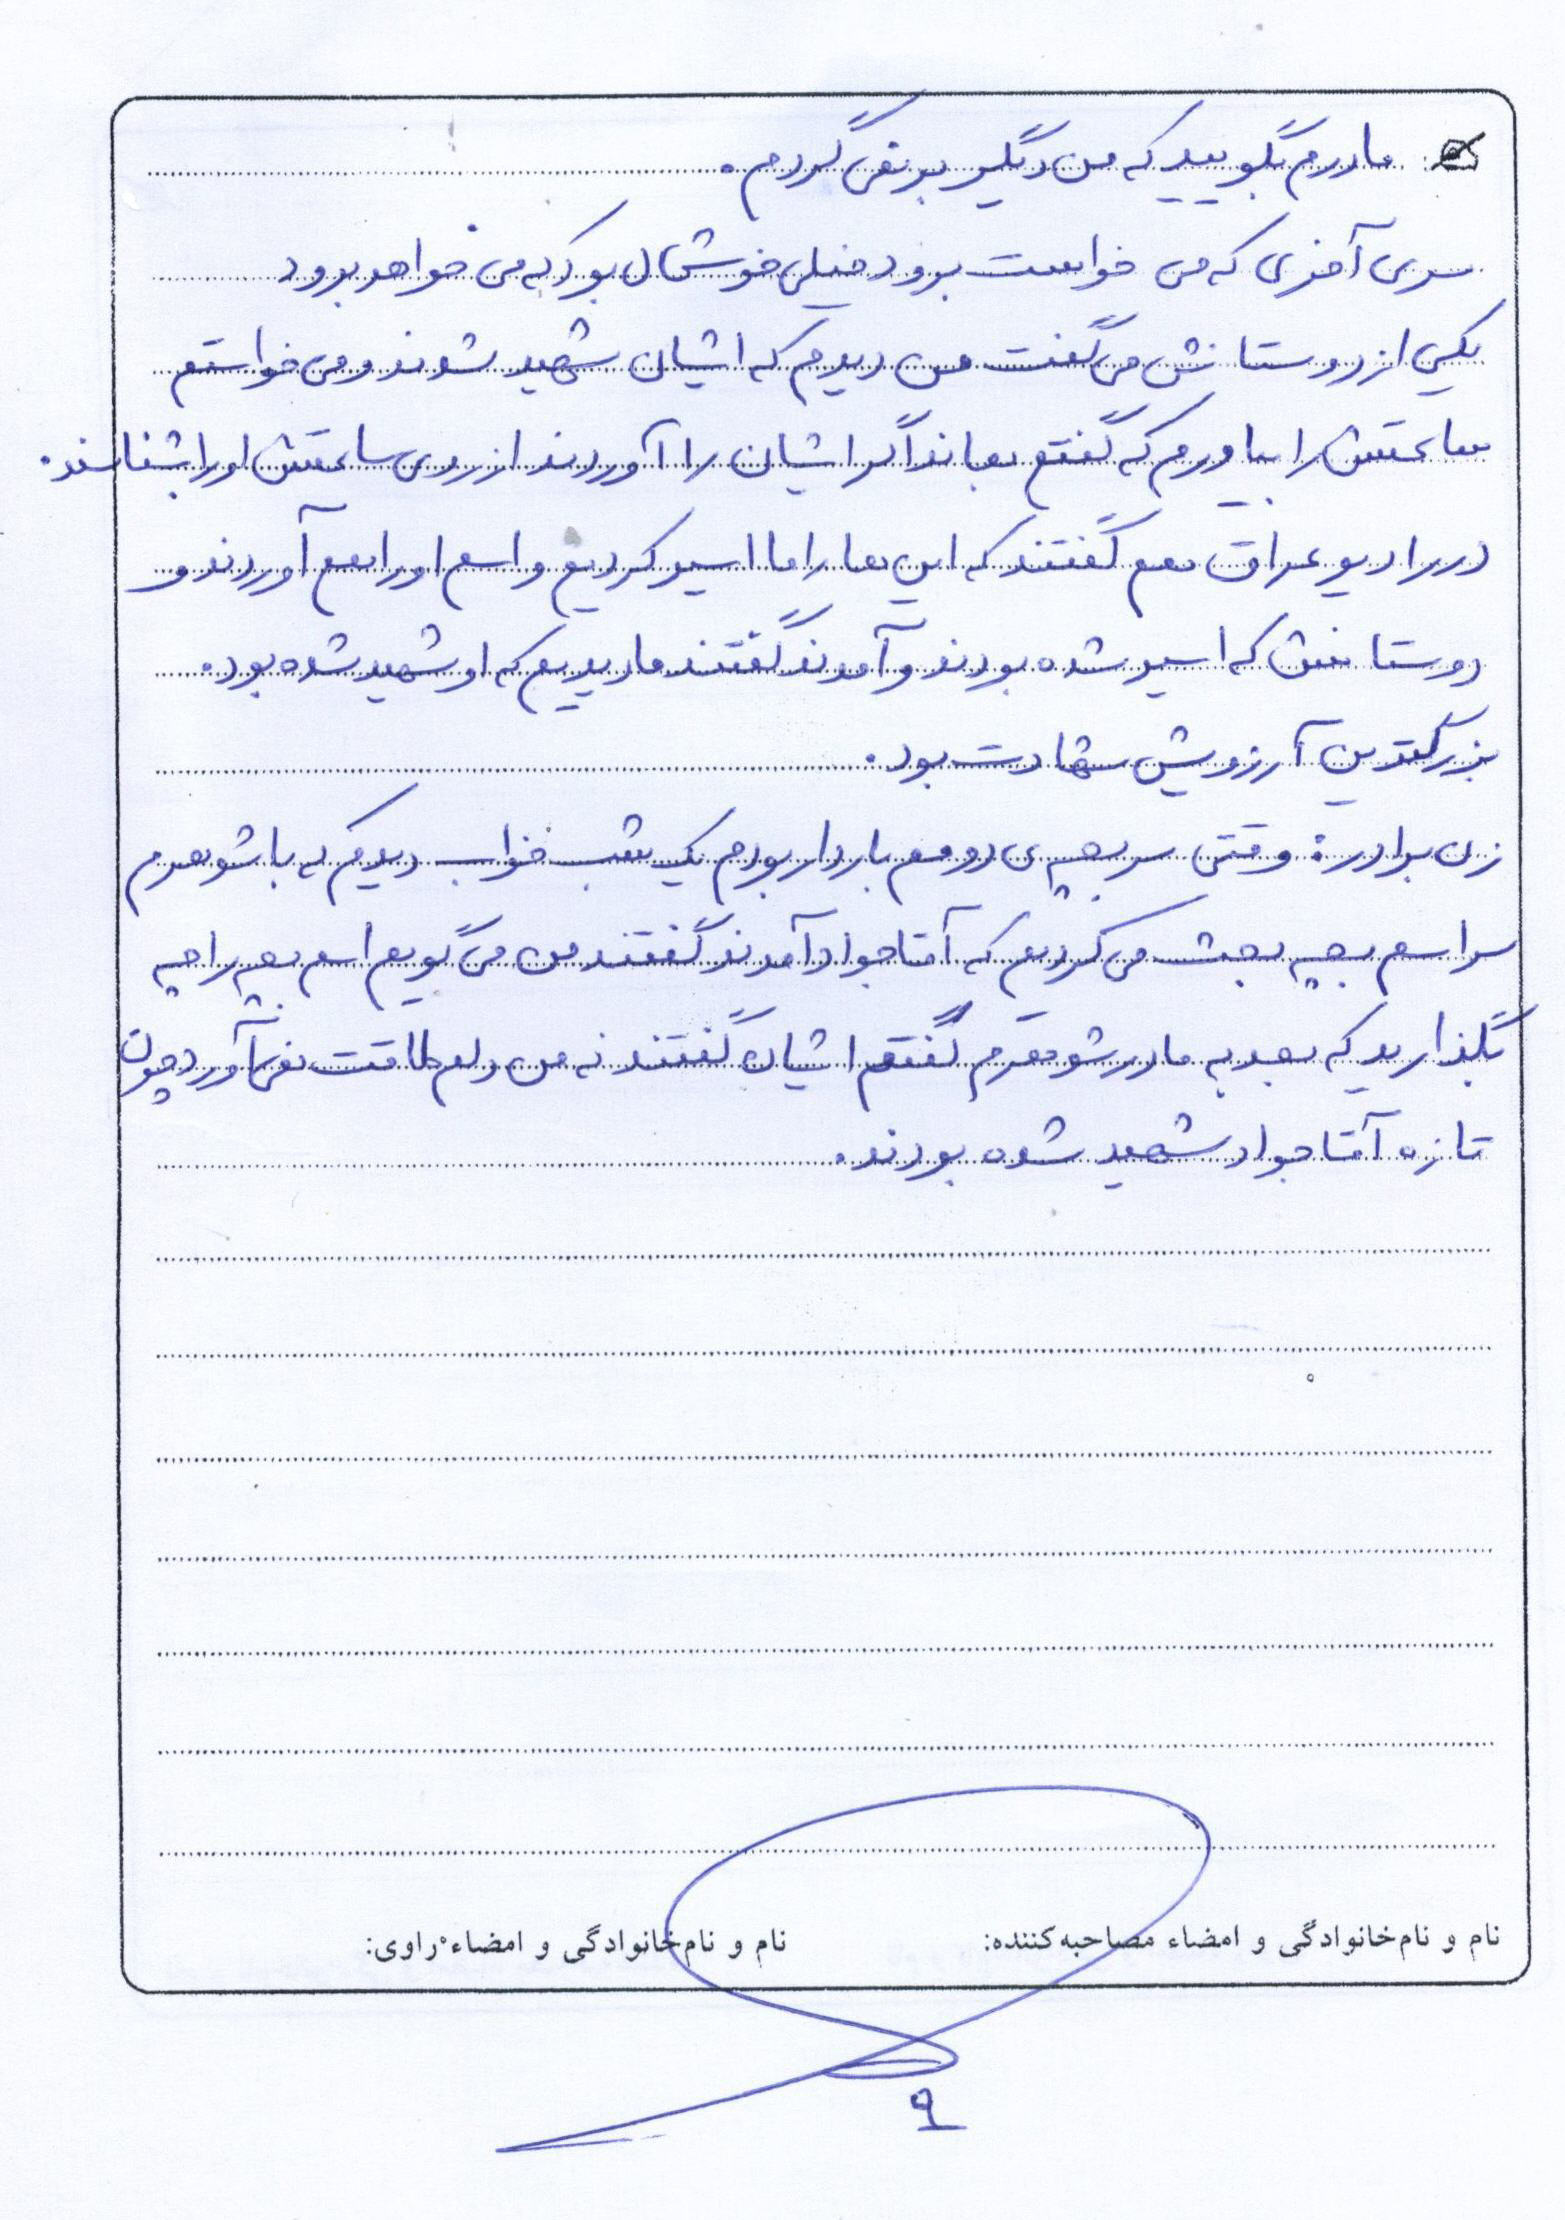 مادرم بگویید که من دیگر بر نمی گردم.
سری آخری که می خواست برود خیلی خوشحال بود که می خواهد برود
یکی از دوستانش می گفت من دیدم که ایشان شهید شدند و می خواستم
ساعتش را بیاورم که گفتم بماند اگر ایشان را آوردند از روی ساعتش او را بشناسند.
در رادیو عراق هم گفتند که این ها را ما اسیر کردیم و اسم او را هم آوردند و
دوستانش که اسیر شده بودند و آمدند گفتند ما دیدیم که او شهید شده بود.
بزرگترین آرزویش شهادت بود.
زن برادر: وقتی سر بچه ی دومم باردار بودم یک شب خواب دیدم که با شوهرم
سر اسم بچه بحث می کردیم که آقا جواد آمدند گفتند من می گویم اسم بچه را چه
بگذارید که بعد به مادر شوهرم گفتم ایشان گفتند نه من دلم طاقت نمی آورد چون
تازه آقا جواد شهید شده بودند.
نام و نام‌خانوادگی و امضاء مصاحبه‌کننده:
نام و نام‌خانوادگی و امضاء راوی:
۹